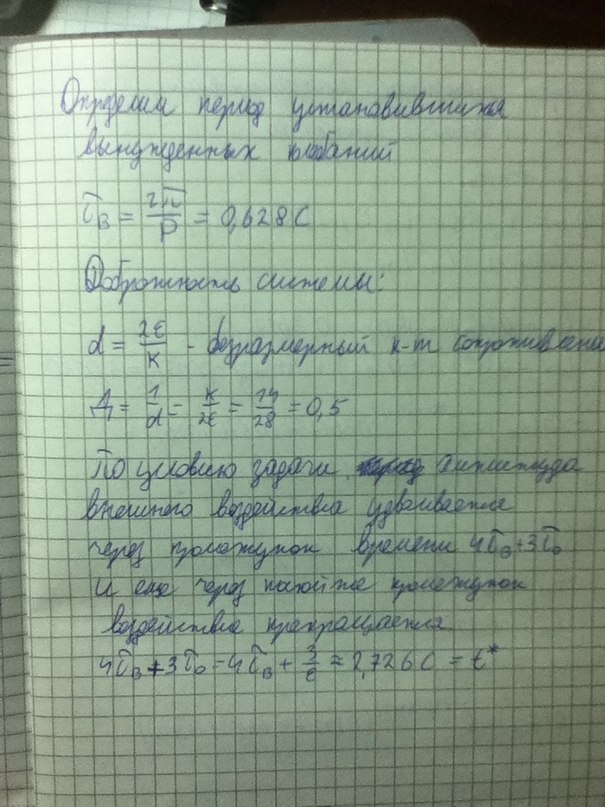 Определим период установившихся
вынужденных колебаний
τв = 2π/p = 0,628 с
Добротность системы:
d = 2ε/k - безразмерный к-т сопротивления
Д = 1/d = k/2ε = 14/28 = 0,5
По условию задачи амплитуда
внешнего воздействия удваивается
через промежуток времени 4τв+3τ₀
и еще через такой же промежуток
воздействие прекращается
4τв+3τ₀ = 4τв + 3/ε ≈ 2,726 с = t*